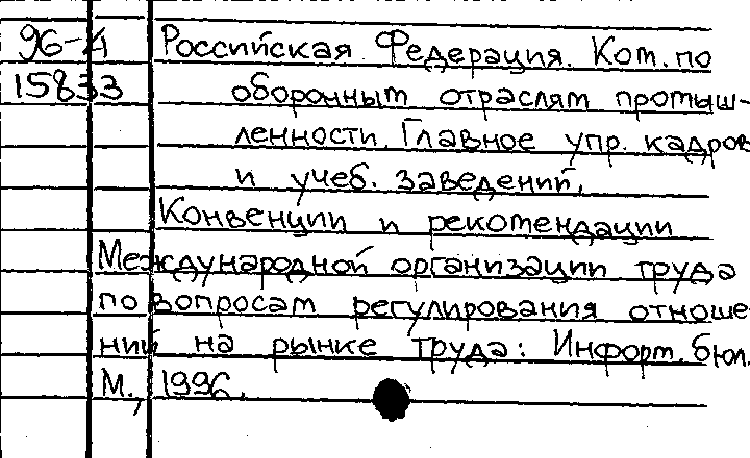 96-4 Российская Федерация. Ком. по
15833 оборонным отраслям промыш-
ленности. Главное упр. кадров
и учеб. заведений.
Конвенции и рекомендации
Международной организации труда
по вопросам регулирования отноше
ний на рынке труда: Информ. бюл.
М., 1996.